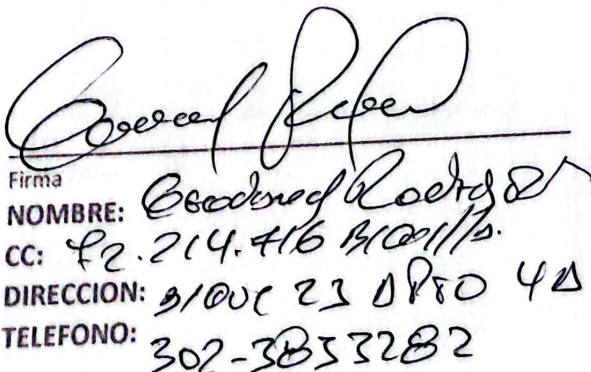 Firma
NOMBRE: Rodrig
CC: 72.214.716 B/quilla.
DIRECCION: 23 APTO 4A
TELEFONO: 302-3853282